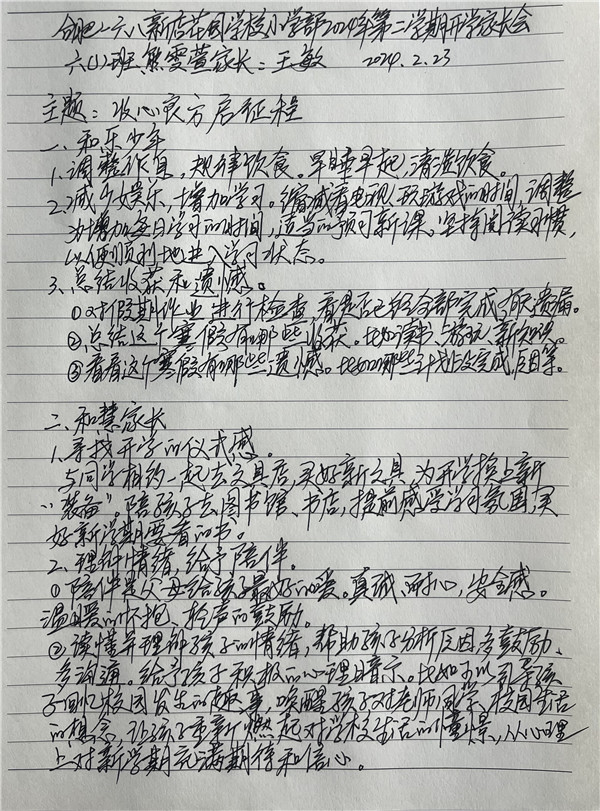 合肥一六八新店花园学校小学部2024年第二学期开学家长会
六(1)班 熊雯萱家长：王敏 2024.2.23
主题：收心良方启征程
一、和乐少年
1.调整作息，规律饮食。早睡早起，清淡饮食。
2.减少娱乐，增加学习。缩减看电视、玩游戏的时间，调整
为增加每日学习的时间，适当的预习新课。坚持阅读习惯，
以便顺利地进入学习状态。
3.总结收获和遗憾。
①对假期作业进行检查，看是否已经全部完成，有无遗漏。
②总结这个寒假有哪些收获。比如读书、游玩、新知识。
③看看这个寒假有哪些遗憾。比如哪些计划没完成，原因等。
二、和慧家长
1.寻找开学的仪式感。
与同学相约一起去文具店，买好新文具，为开学换上新
“装备”。陪孩子去图书馆、书店，提前感受学习氛围，买
好新学期要看的书。
2.理解情绪，给予陪伴。
①陪伴是父母给孩子最好的爱。真诚、耐心，安全感。
温暖的怀抱、轻声的鼓励。
②读懂并理解孩子的情绪，帮助孩子分析原因，多鼓励、
多沟通。给予孩子积极的心理暗示。比如可以引导孩
子回忆校园发生的趣事，唤醒孩子对老师、同学、校园生活
的想念，让孩子重新燃起对学校生活的憧憬，从心理
上对新学期充满期待和信心。